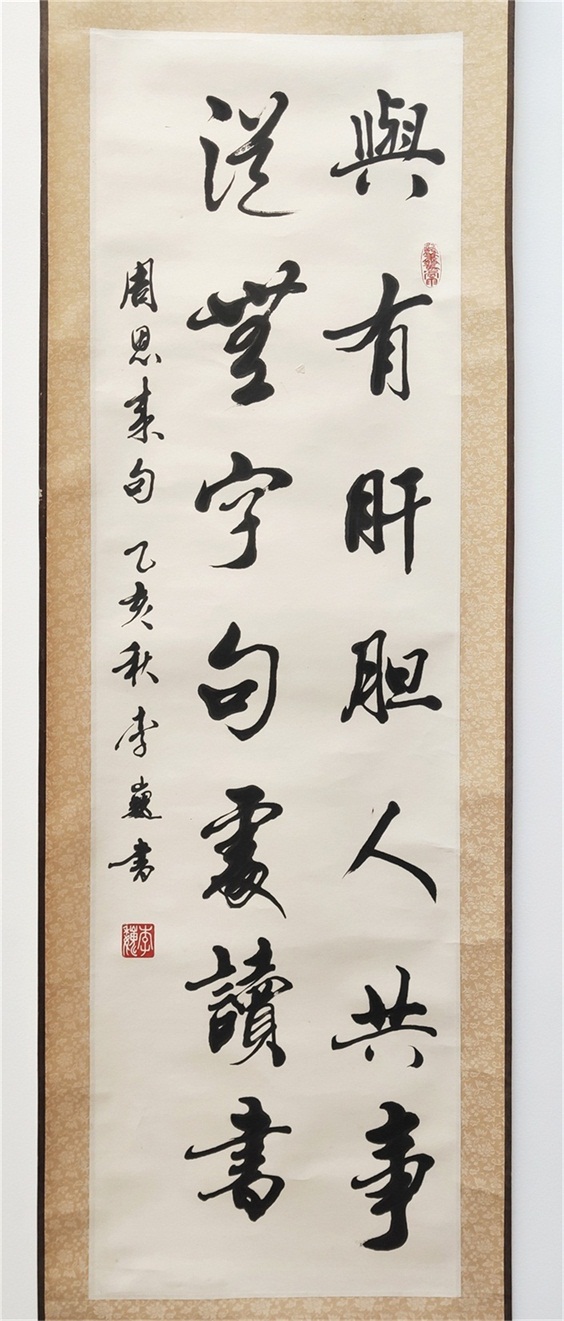 與有肝胆人共事
從無字句處讀書
周恩来句 乙亥秋 李巍书
李巍